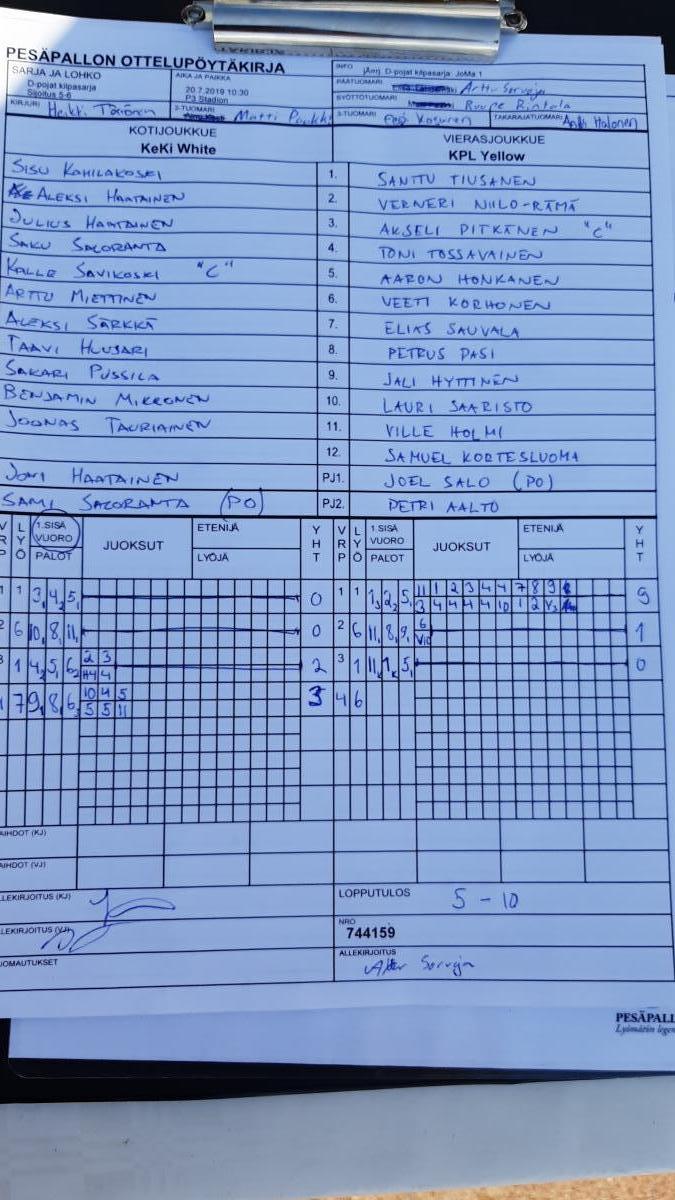 PESÄPALLON OTTELUPÖYTÄKIRJA
SARJA JA LOHKO
D-pojat kilpasarja
Sijoitus 5-6
AIKA JA PAIKKA
20.7.2019 10:30
P3 Stadion
INFO
(Am) D-pojat kilpasarja: JoMa 1
PÄÄTUOMARI
SYÖTTÖTUOMARI Ruupe Rintala
KIRJURI Heikki Törönen
2-TUOMARI Matti
3-TUOMARI Eero Kosunen
TAKARAJATUOMARI Antti Halonen
KOTIJOUKKUE
KeKi White
VIERASJOUKKUE
KPL Yellow
SISU KAHILAKOSKI 1. SANTTU TIUSANEN
ALEKSI HAATAINEN 2. VERNERI NIILO-RÄMÄ
JULIUS HAATAINEN 3. AKSELI PITKÄNEN "C"
SAKU SALORANTA 4. TONI TOSSAVAINEN
KALLE SAVIKOSKI "C" 5. AARON HONKANEN
ARTTU MIETTINEN 6. VEETI KORHONEN
ALEKSI SÄRKKÄ 7. ELIAS SAUVALA
TAAVI HUUSARI 8. PETRUS PASI
SAKARI PUSSILA 9. JALI HYTTINEN
BENJAMIN MIKKONEN 10. LAURI SAARISTO
JOONAS TAURIAINEN 11. VILLE HOLMI
12. SAMUEL KORTESLUOMA
JONI HAATAINEN PJ1. JOEL SALO (PO)
SAMI SALORANTA (PO) PJ2. PETRI AALTO
VRP LYÖ 1.SISÄ VUORO PALOT JUOKSUT ETENIJÄ LYÖJÄ YHT VRP LYÖ 1.SISÄ VUORO PALOT JUOKSUT ETENIJÄ LYÖJÄ YHT
1 1 3 4 5 0 1 1 1 2 5 11 1 2 3 4 4 7 8 9 9
3 4 4 4 4 10 1 2
2 6 10 8 11 0 2 6 11 8 9 6 1
3 1 4 5 6 2 3 2 3 1 11 1 5 0
H4 4
7 9 8 6 10 4 5 3 4 6
5 5 11
AIHDOT (KJ)
AIHDOT (VJ)
LLEKIRJOITUS (KJ)
LOPPUTULOS 5 - 10
LLEKIRJOITUS (VJ)
NRO
744159
UOMAUTUKSET
ALLEKIRJOITUS
PESÄPALL
Lyömätön legen